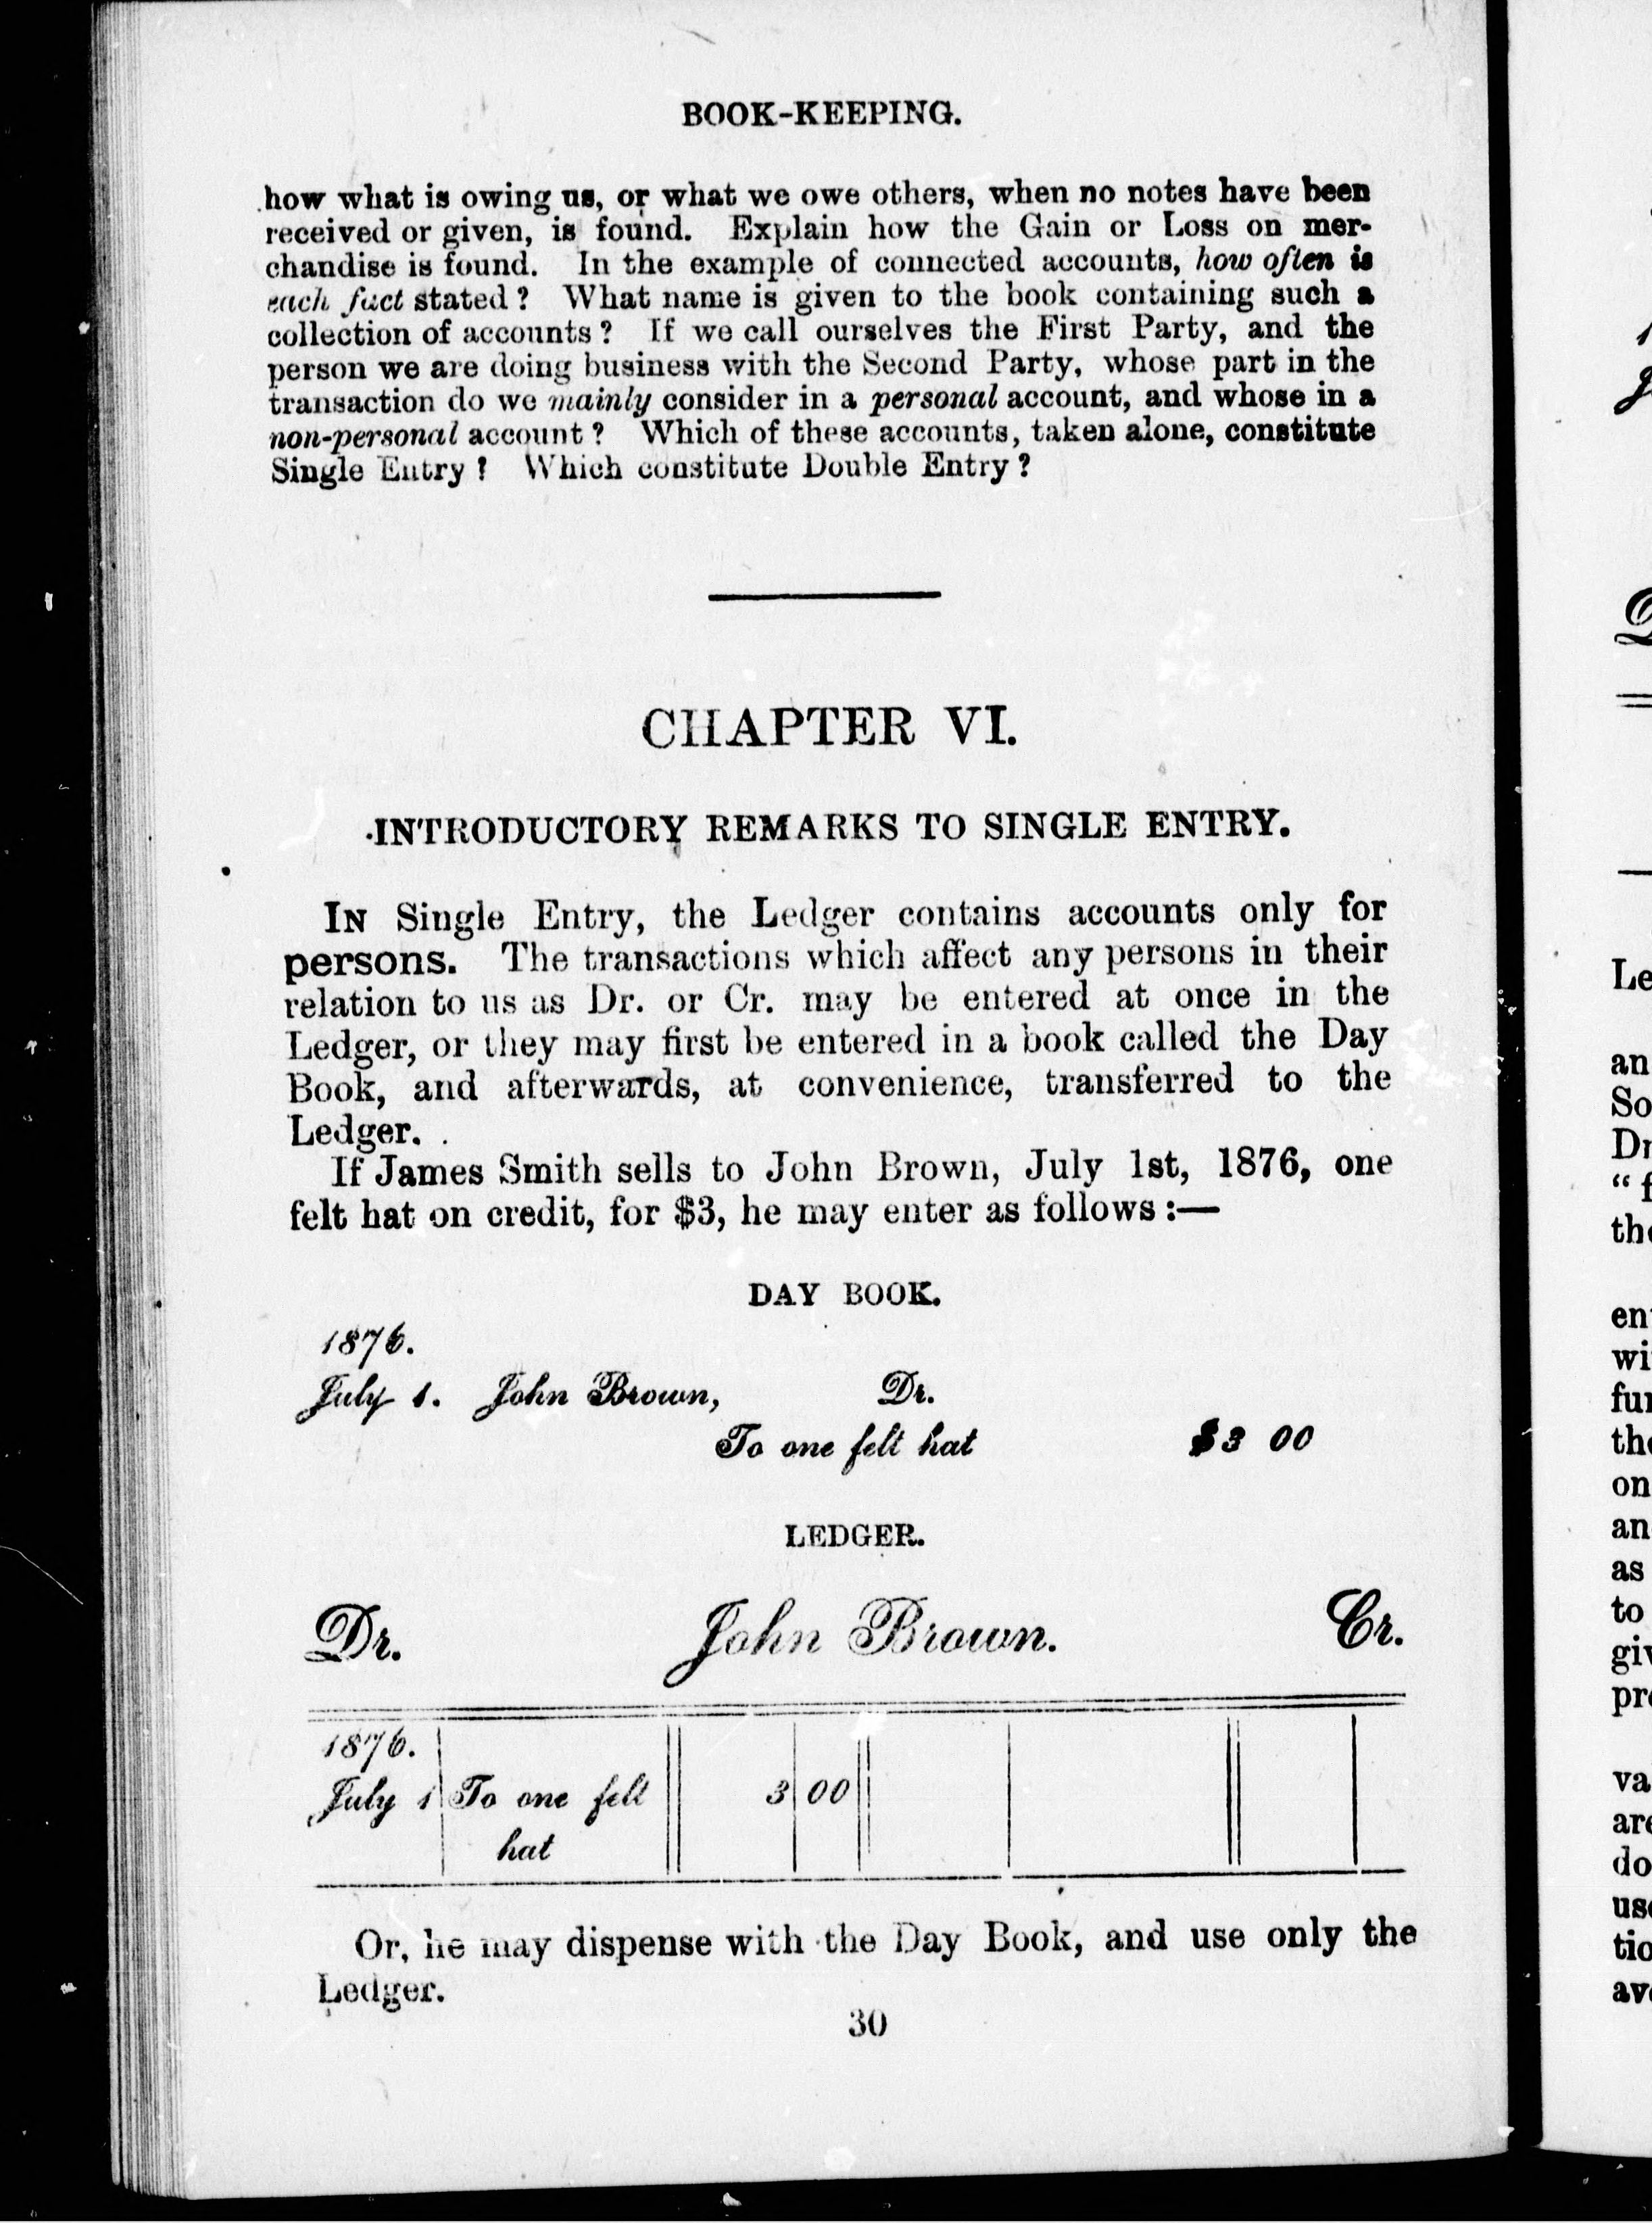 BOOK-KEEPING.
how what is owing us, or what we owe others, when no notes have been
received or given, is found. Explain how the Gain or Loss on mer-
chandise is found. In the example of connected accounts, how often is
each fact stated? What name is given to the book containing such a
collection of accounts? If we call ourselves the First Party, and the
person we are doing business with the Second Party, whose part in the
transaction do we mainly consider in a personal account, and whose in a
non-personal account? Which of these accounts, taken alone, constitute
Single Entry? Which constitute Double Entry?
CHAPTER VI.
INTRODUCTORY REMARKS TO SINGLE ENTRY.
IN Single Entry, the Ledger contains accounts only for
persons. The transactions which affect any persons in their
relation to us as Dr. or Cr. may be entered at once in the
Ledger, or they may first be entered in a book called the Day
Book, and afterwards, at convenience, transferred to the
Ledger.
If James Smith sells to John Brown, July 1st, 1876, one
felt hat on credit, for $3, he may enter as follows:—
DAY BOOK.
1876.
July 1. John Brown, Dr.
To one felt hat $3 00
LEDGER.
Dr. John Brown. Cr.
1876.
July 1 To one felt 3 00
hat
Or, he may dispense with the Day Book, and use only the
Ledger.
30
Le
an
So
Dr
“ f
the
en
wi
fu
the
on
an
as
to
giv
pre
va
are
do
use
tio
ave